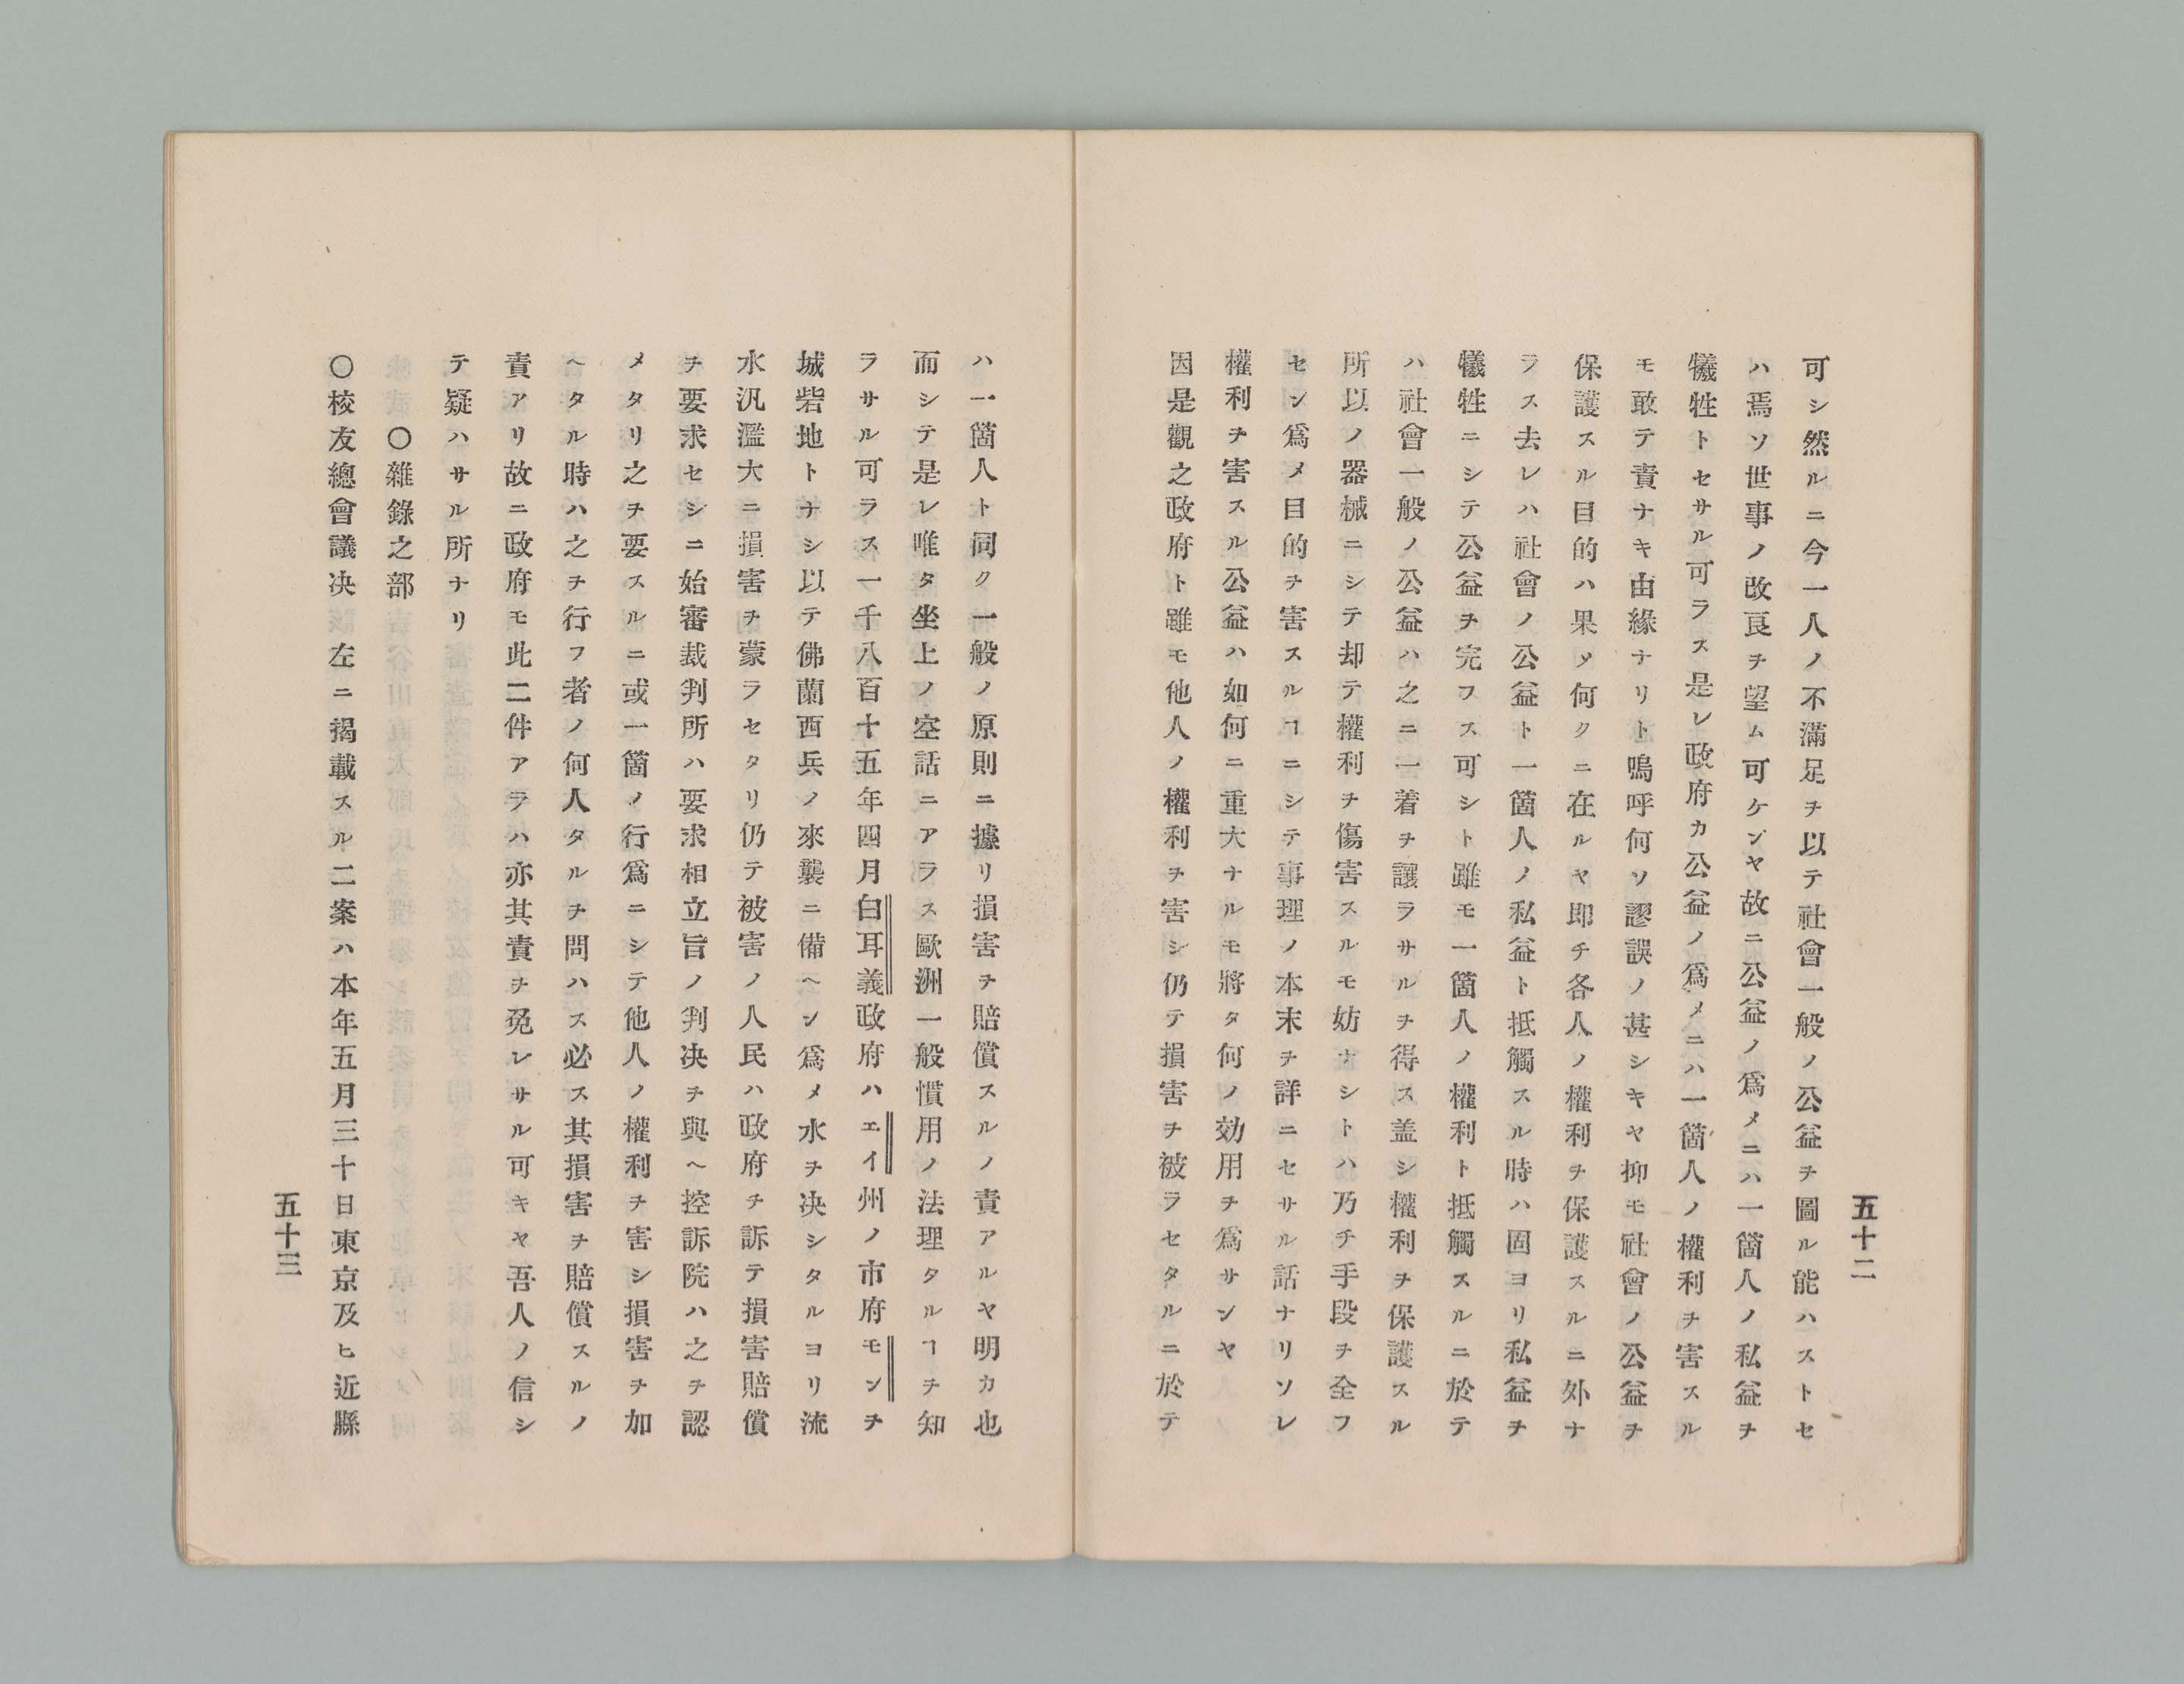 五十二
可シ然ルニ今一人ノ不滿足ヲ以テ社會一般ノ公益ヲ圖ル能ハストセ
ハ焉ソ世事ノ改良ヲ望ム可ケンヤ故ニ公益ノ爲メニハ一箇人ノ私益ヲ
犧牲トセサル可ラス是レ政府カ公益ノ爲メニハ一箇人ノ權利ヲ害スル
モ敢テ責ナキ由緣ナリト嗚呼何ソ謬誤ノ甚シキヤ抑モ社會ノ公益ヲ
保護スル目的ハ果メ何クニ在ルヤ即チ各人ノ權利ヲ保護スルニ外ナ
ラス去レハ社會ノ公益ト一箇人ノ私益ト抵觸スル時ハ固ヨリ私益ヲ
犧牲ニシテ公益ヲ完フス可シト雖モ一箇人ノ權利ト抵觸スルニ於テ
ハ社會一般ノ公益ハ之ニ一着ヲ讓ラサルヲ得ス盖シ權利ヲ保護スル
所以ノ器械ニシテ却テ權利ヲ傷害スルモ妨ナシトハ乃チ手段ヲ全フ
セン爲メ目的ヲ害スルヿニシテ事理ノ本末ヲ詳ニセサル話ナリソレ
權利ヲ害スル公益ハ如何ニ重大ナルモ將タ何ノ効用ヲ爲サンヤ
因是觀之政府ト雖モ他人ノ權利ヲ害シ仍テ損害ヲ被ラセタルニ於テ
ハ一箇人ト同ク一般ノ原則ニ據リ損害ヲ賠償スルノ責アルヤ明カ也
而シテ是レ唯タ坐上ノ空話ニアラス歐洲一般慣用ノ法理タルヿヲ知
ラサル可ラス一千八百十五年四月白耳義政府ハエイ州ノ市府モンヲ
城砦地トナシ以テ佛蘭西兵ノ來襲ニ備ヘン爲メ水ヲ決シタルヨリ流
水汎濫大ニ損害ヲ蒙ラセタリ仍テ被害ノ人民ハ政府ヲ訴テ損害賠償
ヲ要求セシニ始審裁判所ハ要求相立旨ノ判决ヲ與ヘ控訴院ハ之ヲ認
メタリ之ヲ要スルニ或一箇ノ行爲ニシテ他人ノ權利ヲ害シ損害ヲ加
ヘタル時ハ之ヲ行フ者ノ何人タルヲ問ハス必ス其損害ヲ賠償スルノ
責アリ故ニ政府モ此二件アラハ亦其責ヲ免レサル可キヤ吾人ノ信シ
テ疑ハサル所ナリ
〇雜錄之部
〇校友總會議决 左ニ揭載スル二案ハ本年五月三十日東京及ヒ近縣
五十三